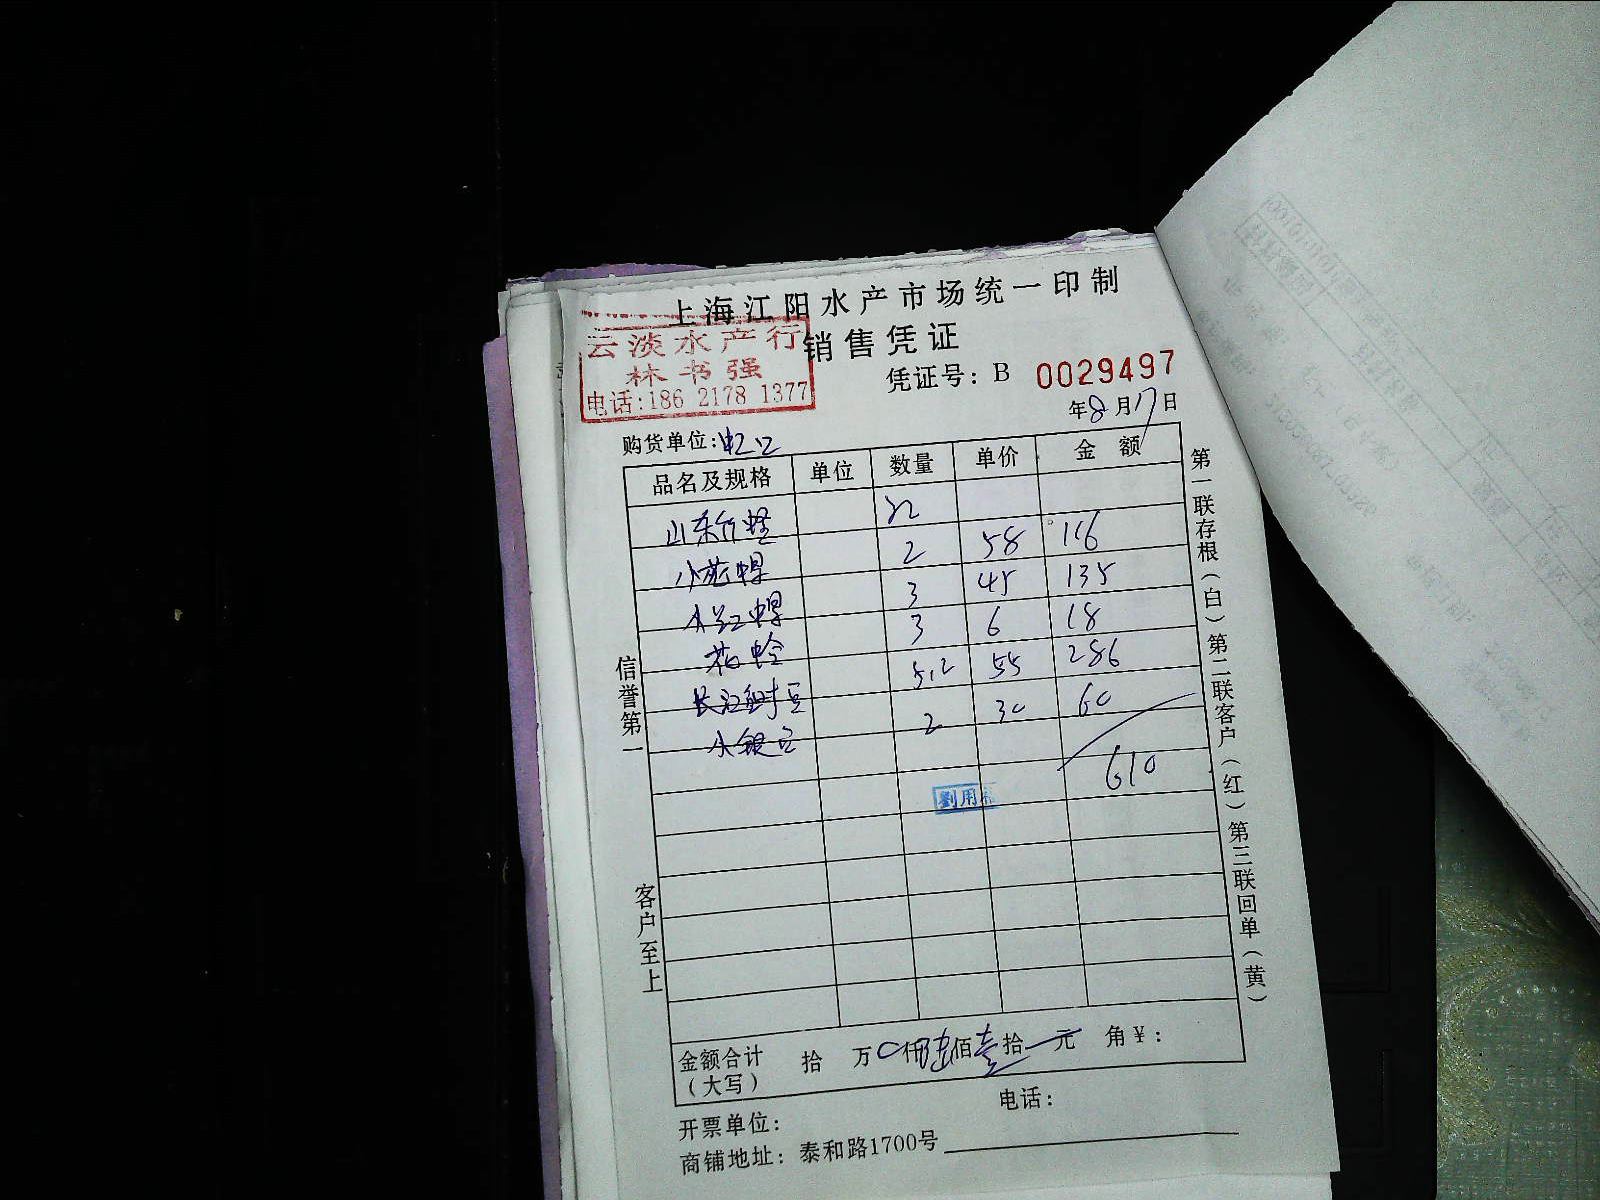 上海江阳水产市场统一印制
云淡水产行
林书强
电话:186 2178 1377
销售凭证
凭证号: B 0029497
年8月17日
购货单位:虹口
品名及规格 单位 数量 单价 金额
山东
小 2 58 116
小红 3 45 135
花蛤 3 6 18
长江鲥鱼 5.2 55 286
小银鱼 2 30 60
610
劉用
金额合计(大写) 拾 万 0仟陆佰壹拾 元 角 ¥:
开票单位: 电话:
商铺地址: 泰和路1700号
信誉第一
客户至上
第一联存根(白) 第二联客户(红) 第三联回单(黄)